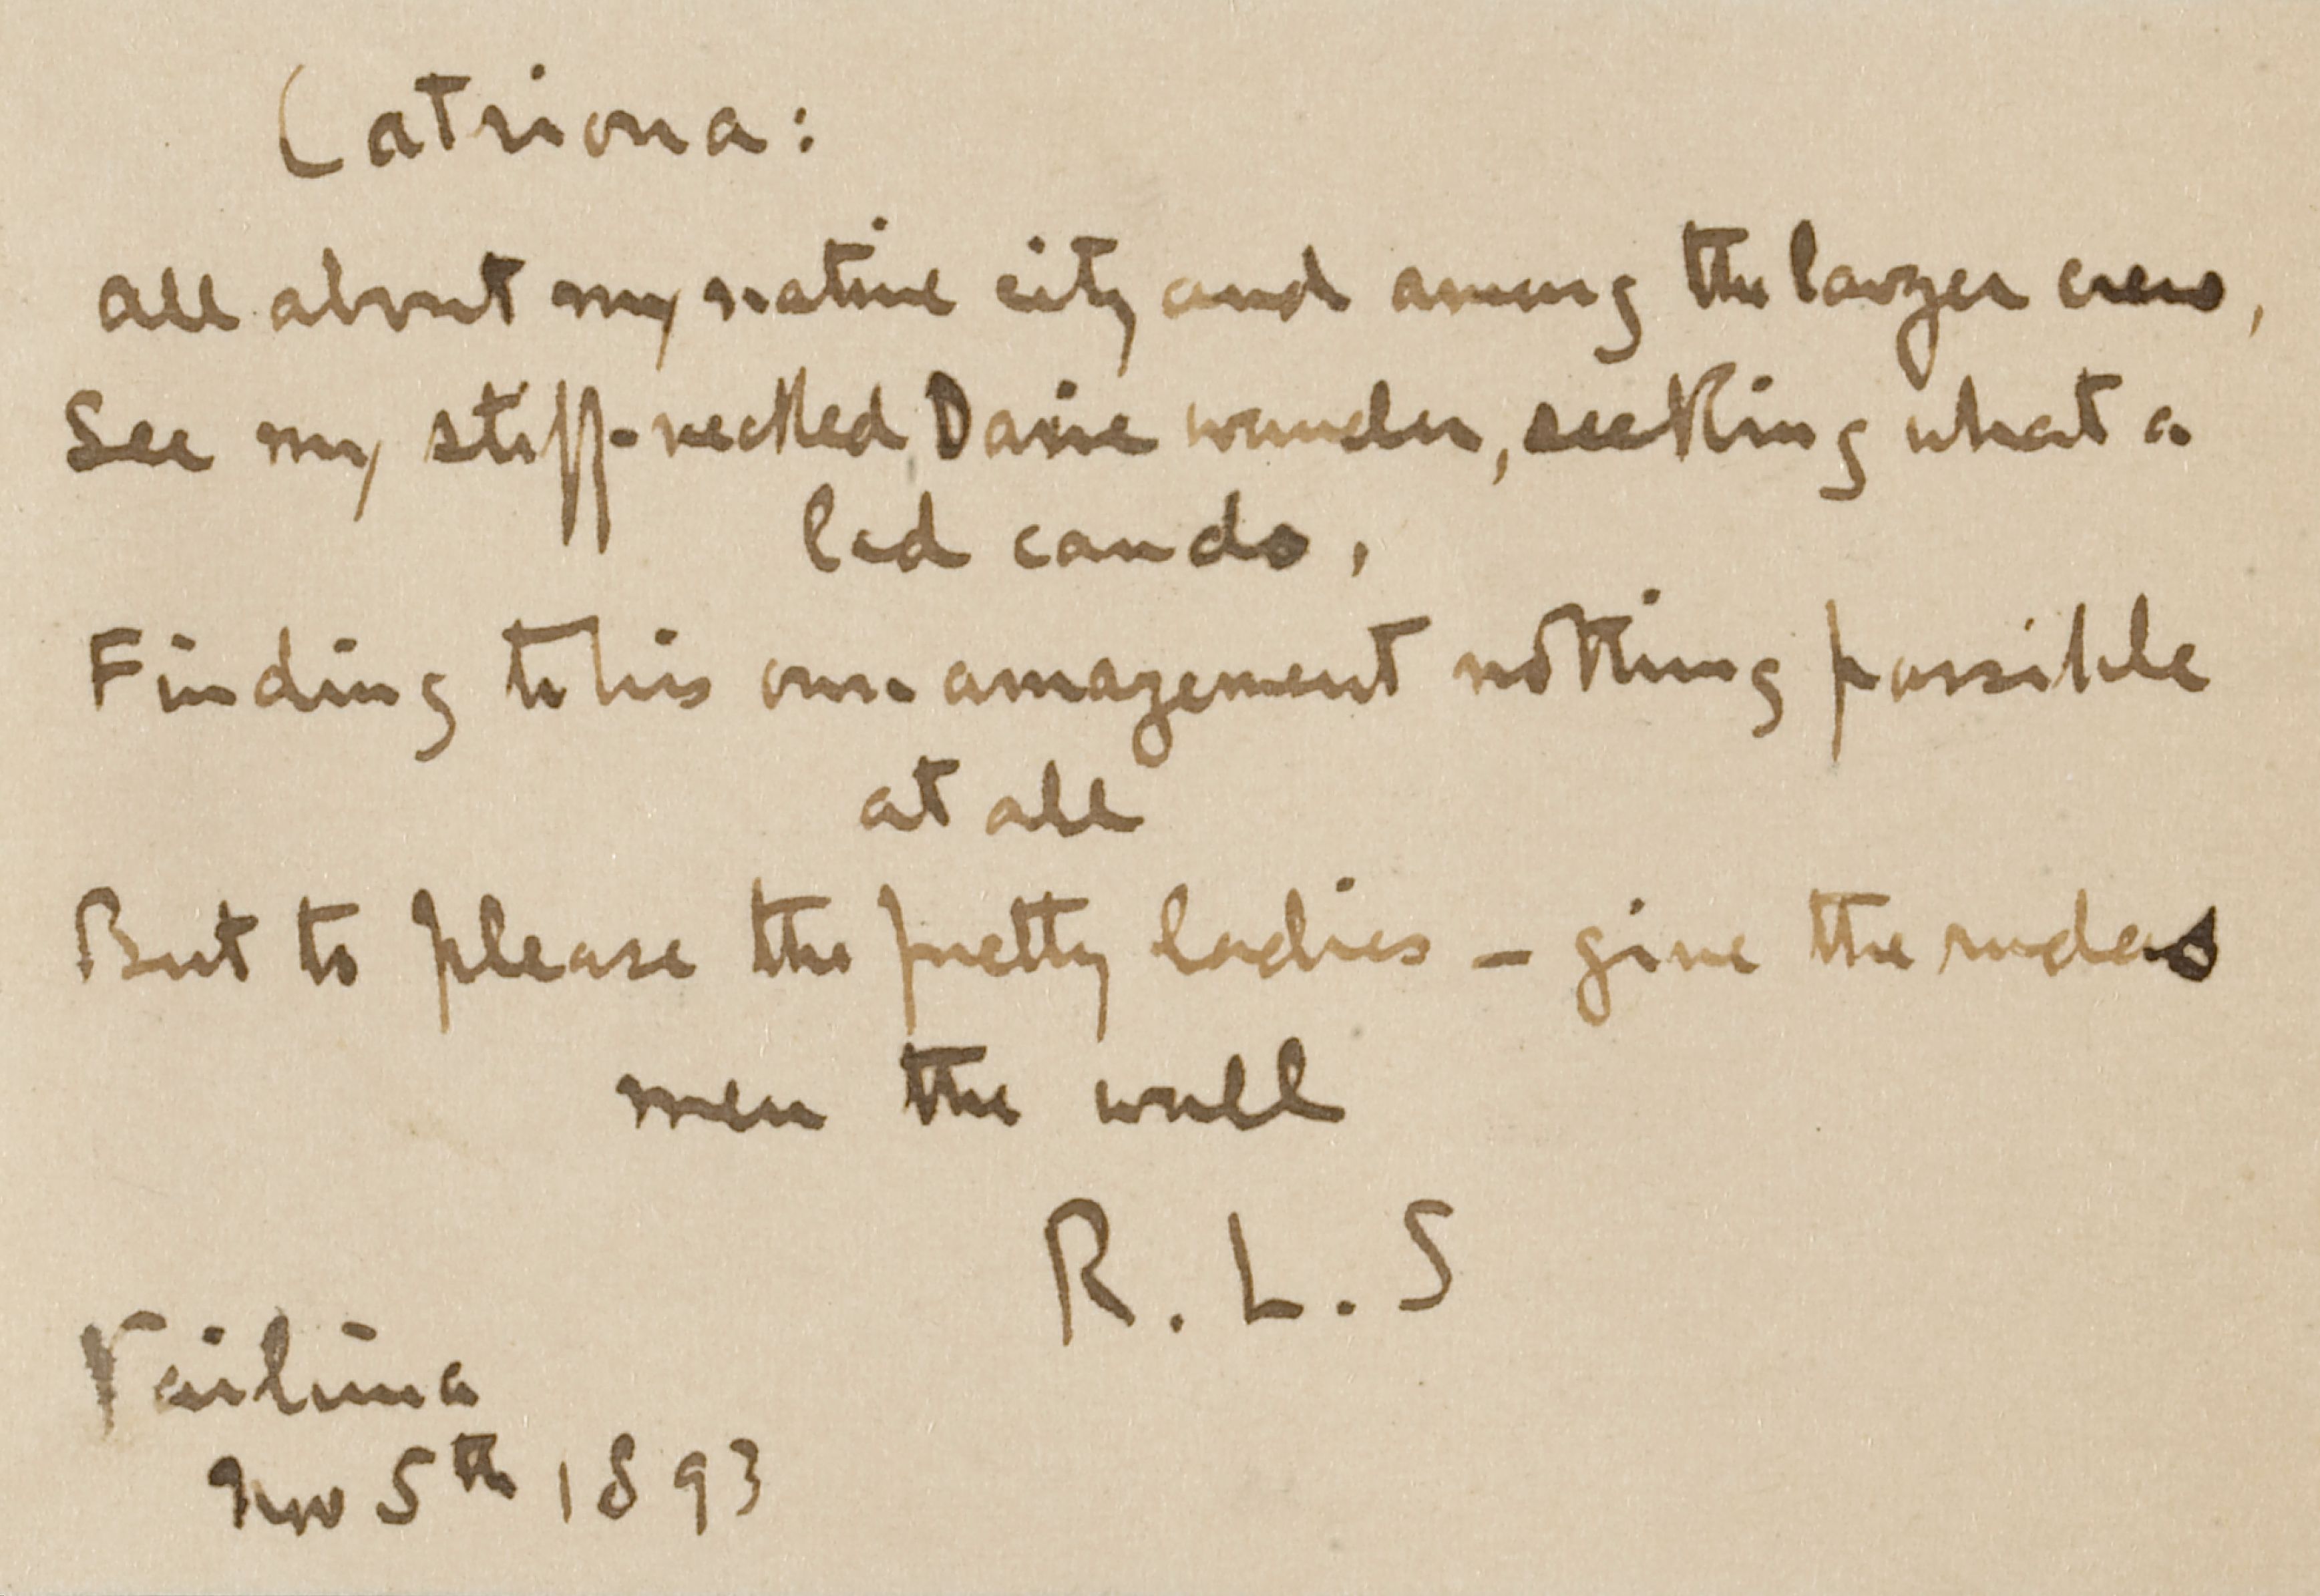 Catriona:
All about my native city and among the lawyer crew,
See my stiff-necked Davie wander, seeking what a
lad can do,
Finding to his own amazement nothing possible
at all
But to please the pretty ladies – give the rudas
men the wall
R. L. S
Vailima
Nov 5th 1893